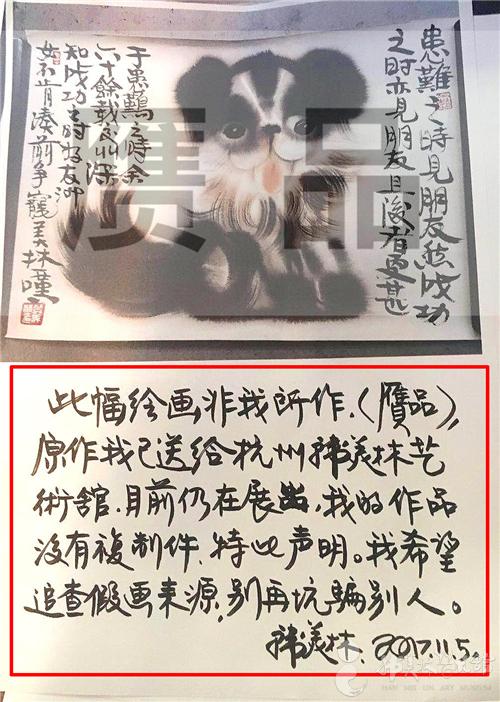 患難之時見朋友然成功
之时亦见朋友且後者更甚
于患難之時余
六十餘載
和成功之時
女不肯凑前争寵美林
赝品
此幅绘画非我所作.(贋品),
原作我已送给杭州韩美林艺
術舘.目前仍在展出,我的作品
没有複制件.特此声明。我希望
追查假画来源,别再坑骗别人。
韩美林.2017.11.5.
HAN MEI LIN ART MUSEUM